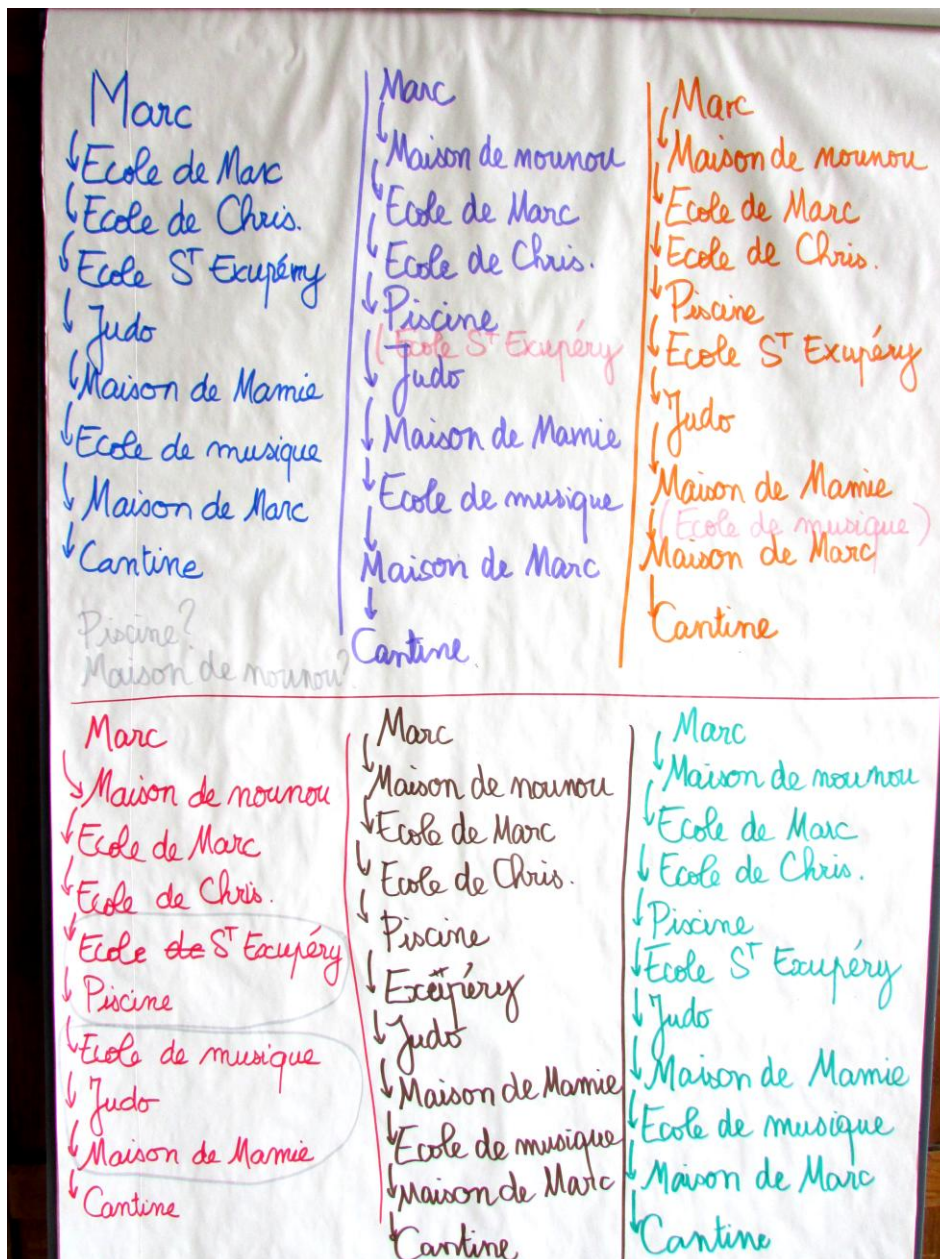 Marc
Ecole de Marc
Ecole de Chris.
Ecole St Exupéry
Judo
Maison de Mamie
Ecole de musique
Maison de Marc
Cantine
Piscine?
Maison de nounou?
Marc
Maison de nounou
Ecole de Marc
Ecole de Chris.
Piscine
(Ecole St Exupéry
Judo
Maison de Mamie
Ecole de musique
Maison de Marc
Cantine.
Marc
Maison de nounou
Ecole de Marc
Ecole de Chris.
Piscine
Ecole St Exupéry
Judo
Maison de Mamie
(Ecole de musique)
Maison de Marc
Cantine
Marc
Maison de nounou
Ecole de Marc
Ecole de Chris.
Ecole de St Exupéry
Piscine
Ecole de musique
Judo
Maison de Mamie
Cantine
Marc
Maison de nounou
Ecole de Marc
Ecole de Chris.
Piscine
Exupéry
Judo
Maison de Mamie
Ecole de musique
Maison de Marc
Cantine
Marc
Maison de nounou
Ecole de Marc
Ecole de Chris.
Piscine
Ecole St Exupéry
Judo
Maison de Mamie
Ecole de musique
Maison de Marc
Cantine